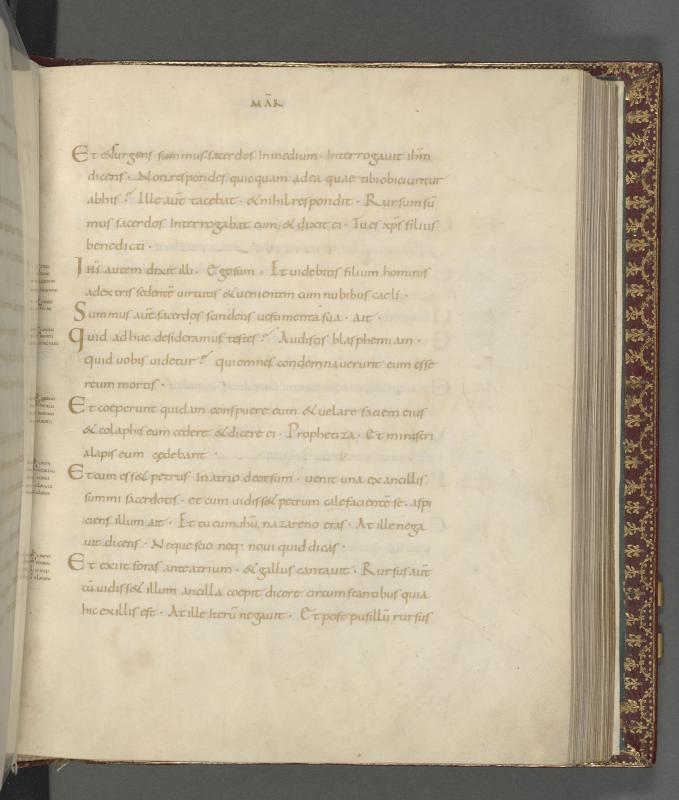 MAR̄
Et exsurgens summus sacerdos Inmedium · Interrogauit ihm̄
dicens · Non respondes quicquam adea quae tibi obiciuntur
abhis ? Ille aut̄ tacebat · & nihil respondit · Rursum sū
mus sacerdos Interrogabat eum, & dixit ei · Tu es xp̄s filius
benedicti ·
Ihs̄ autem dixit illi · Ego sum · Et uidebitis filium hominis
adextris sedentē uirtutis & uenientem cum nubibus caeli ·
Summus aut̄ sacerdos scindens uestimenta sua · ait ·
Quid adhuc desideramus testes ? Audistis blasphemiam ·
quid uobis uidetur ? qui omnes condemnauerunt eum esse
reum mortis ·
Et coeperunt quidam conspuere eum & uelare faciem eius
& colaphis eum cędere & dicere ei · Prophetiza · Et ministri
alapis eum cędebant ·
Et cum ess& petrus In atrio deorsum · uenit una ex ancillis
summi sacerdotis · et cum uidiss& petrum calefacientē se · aspi
ciens illum ait · Et tu cum ihū nazareno eras · At ille nega
uit dicens · Neque scio neq· noui quid dicas ·
Et exiit foras ante atrium · & gallus cantauit · Rursus aut̄
cū uidiss& illum ancilla coepit dicere circumstantibus quia
hic ex illis est · At ille Iterū negauit · Et post pusillū rursus